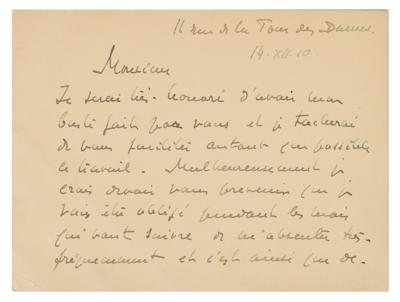 11 rue de la Tour des Dames.
14-XII-10.
Monsieur
Je serai très-honoré d'avoir mon
buste fait par vous et je tacherai
de vous faciliter autant que possible
le travail. Malheureusement je
crois devoir vous prévenir que je
vais être obligé pendant les mois
qui vont suivre de m'absenter très-
fréquemment et c'est ainsi que de-